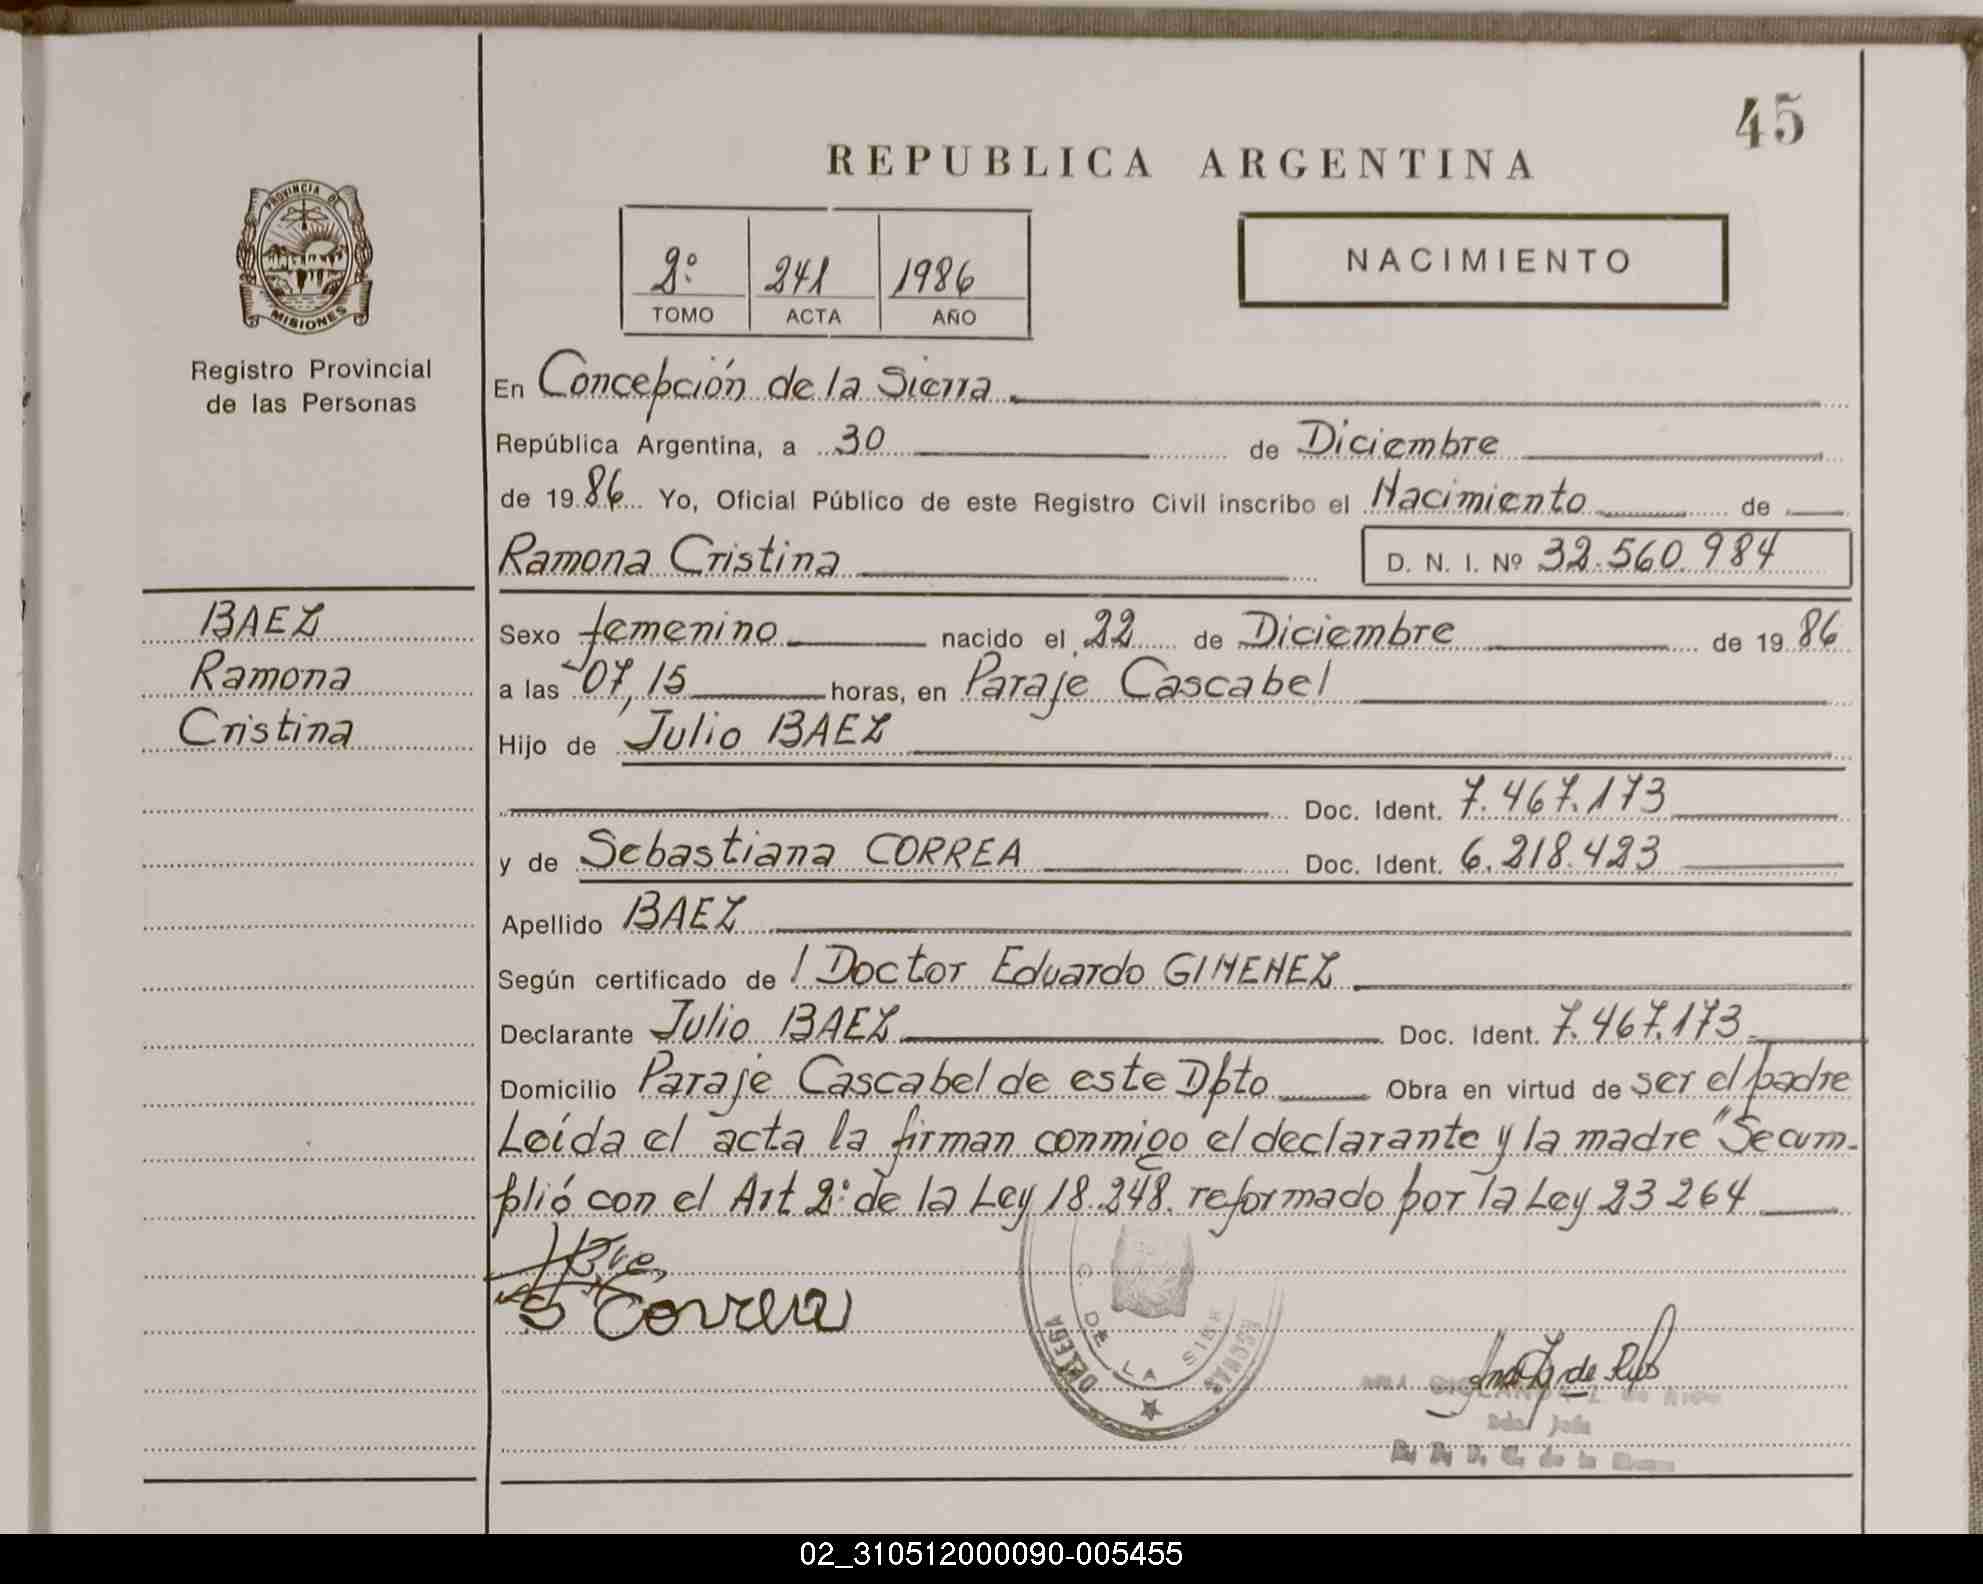 45
REPUBLICA ARGENTINA
PROVINCIA DE
MISIONES
Registro Provincial
de las Personas
2º 241 1986
TOMO ACTA AÑO
NACIMIENTO
En Concepción de la Sierra
República Argentina, a 30 de Diciembre
de 1986 Yo, Oficial Público de este Registro Civil inscribo el Nacimiento de
Ramona Cristina D. N. I. Nº 32.560.984
BAEZ
Ramona
Cristina
Sexo femenino nacido el 22 de Diciembre de 1986
a las 07,15 horas, en Paraje Cascabel
Hijo de Julio BAEZ
Doc. Ident. 7.467.173
y de Sebastiana CORREA Doc. Ident. 6.218.423
Apellido BAEZ
Según certificado de / Doctor Eduardo GIMENEZ
Declarante Julio BAEZ Doc. Ident. 7.467.173
Domicilio Paraje Cascabel de este Dpto Obra en virtud de ser el padre
Leída el acta la firman conmigo el declarante y la madre "Se cum-
plió con el Art 2º de la Ley 18.248. reformado por la Ley 23264
S Correa
C. DE LA SIERRA
DELEGA
de
de la
02_310512000090-005455